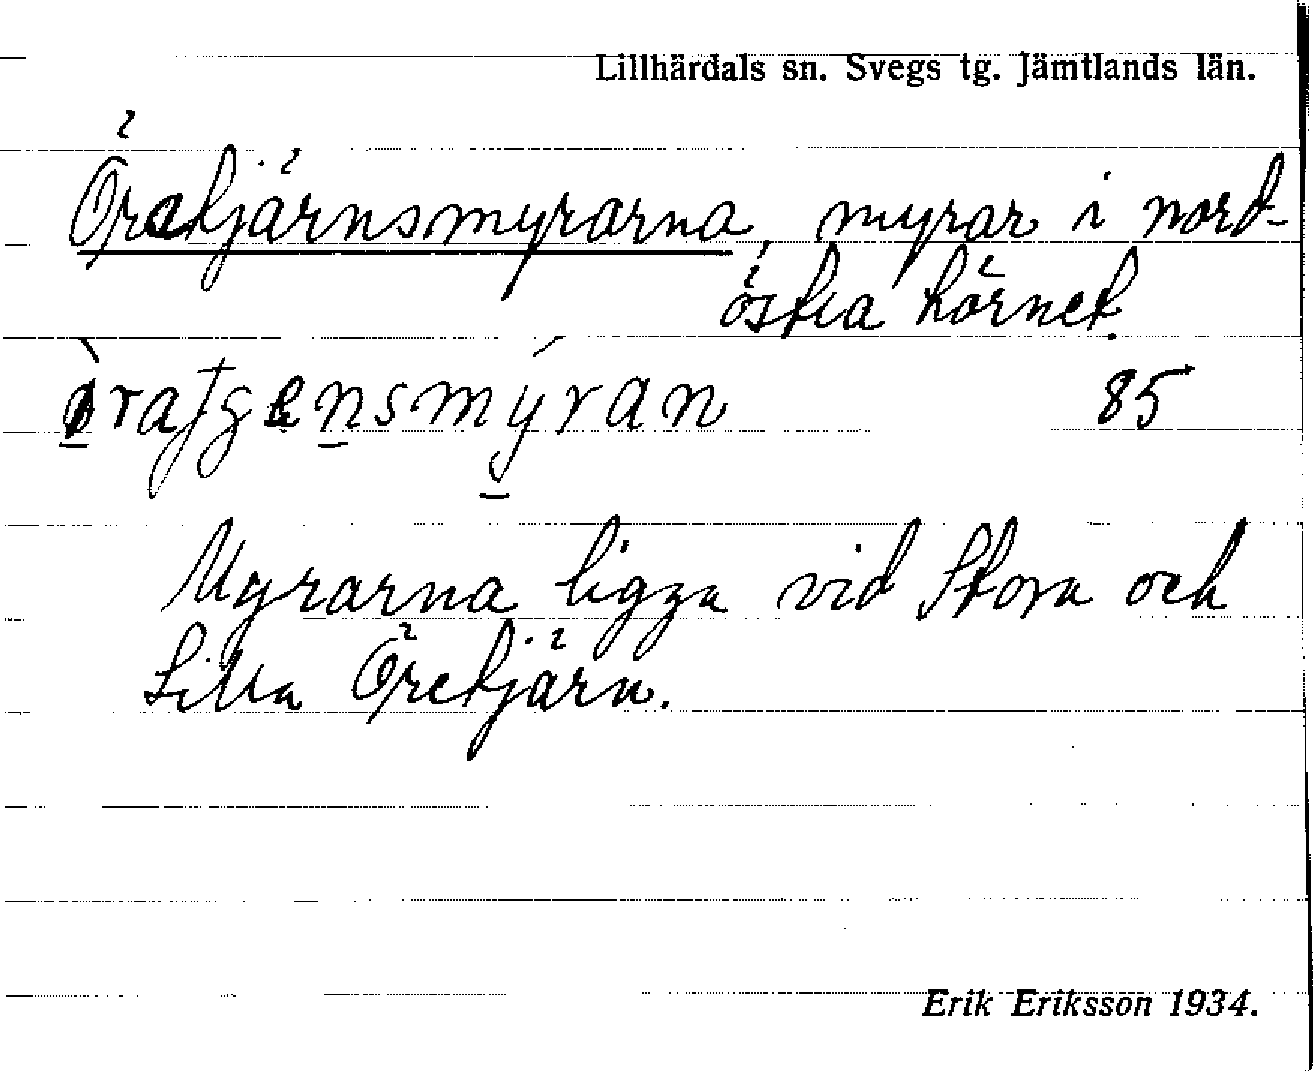 Lillhärdals sn. Svegs tg. Jämtlands län.
Öretjärnsmyrarna, myrar i nord-
östra hörnet.
85
Myrarna ligga vid Stora och
Lilla Öretjärn.
Erik Eriksson 1934.